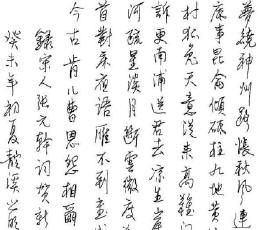 夢繞神州路悵秋風連
底事昆侖傾砥柱九地黃
村狐兔天意從來高難問
訴更南浦送君去涼生岸
河疏星淡月斷雲微度
首對床夜語雁不到書
今古肯兒曹恩怨相爾
錄宋人張元幹詞賀新
癸未年初夏